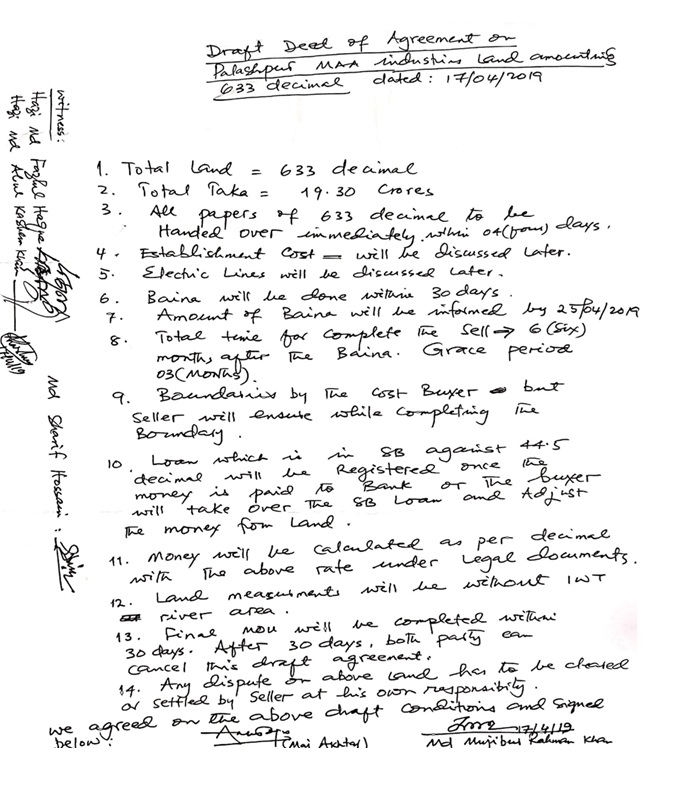 Draft Deed of Agreement on
Palashpur MAA industries Land amounting
633 decimal dated: 17/04/2019
1. Total Land = 633 decimal
2. Total Taka = 19.30 Crores
3. All papers of 633 decimal to be
Handed over immediately within 04(four) days.
4. Establishment Cost = will be discussed later.
5. Electric Lines will be discussed later.
6. Baina will be done within 30 days.
7. Amount of Baina will be informed by 25/04/2019
8. Total time for complete the sell → 6 (six)
months after the Baina. Grace period
03 (Months).
9. Boundaries by the cost Buyer but
Seller will ensure while completing the
Boundary.
10. Loan which is in SB against 44.5
decimal will be Registered once the
money is paid to Bank or the buyer
will take over the SB Loan and Adjust
the money from Land.
11. Money will be calculated as per decimal
with the above rate under Legal documents.
12. Land measurments will be without IWT
river area.
13. Final MOU will be completed within
30 days. After 30 days, both party can
cancel this draft agreement.
14. Any dispute on above Land has to be cleared
or settled by seller at his own responsibity.
we agreed on the above draft conditions and signed
below:
(Mai Akhtar)
17/4/19
Md Mujibur Rahman Khan
witness:
Hazi Md Fazlul Haque
Hazi Md Abul Kashem Khan
Md Sharif Hossain: